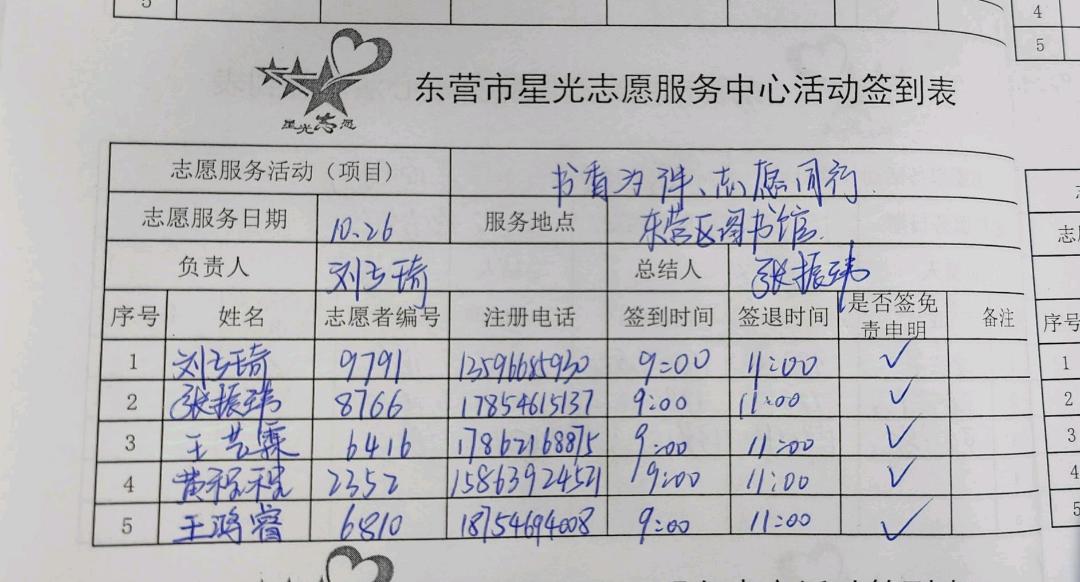 5
4
5
星光志愿
东营市星光志愿服务中心活动签到表
志愿服务活动（项目） 书香为伴、志愿同行
志愿服务日期 10.26 服务地点 东营区图书馆
负责人 刘 琦 总结人 张振玮
序号 姓名 志愿者编号 注册电话 签到时间 签退时间 是否签免责申明 备注 序号
1 刘 琦 9791 13596685930 9:00 11:00 ✓ 1
2 张振玮 8766 17854615137 9:00 11:00 ✓ 2
3 王艺霖 6416 17862168875 9:00 11:00 ✓ 3
4 黄程程 2352 15863924521 9:00 11:00 ✓ 4
5 王鸿睿 6810 18754694008 9:00 11:00 ✓ 5